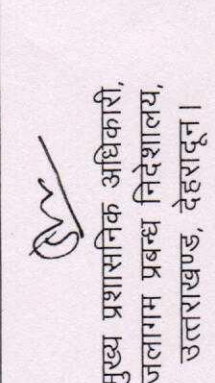 मुख्य प्रशासनिक अधिकारी,
जलागम प्रबन्ध निदेशालय,
उत्तराखण्ड, देहरादून।